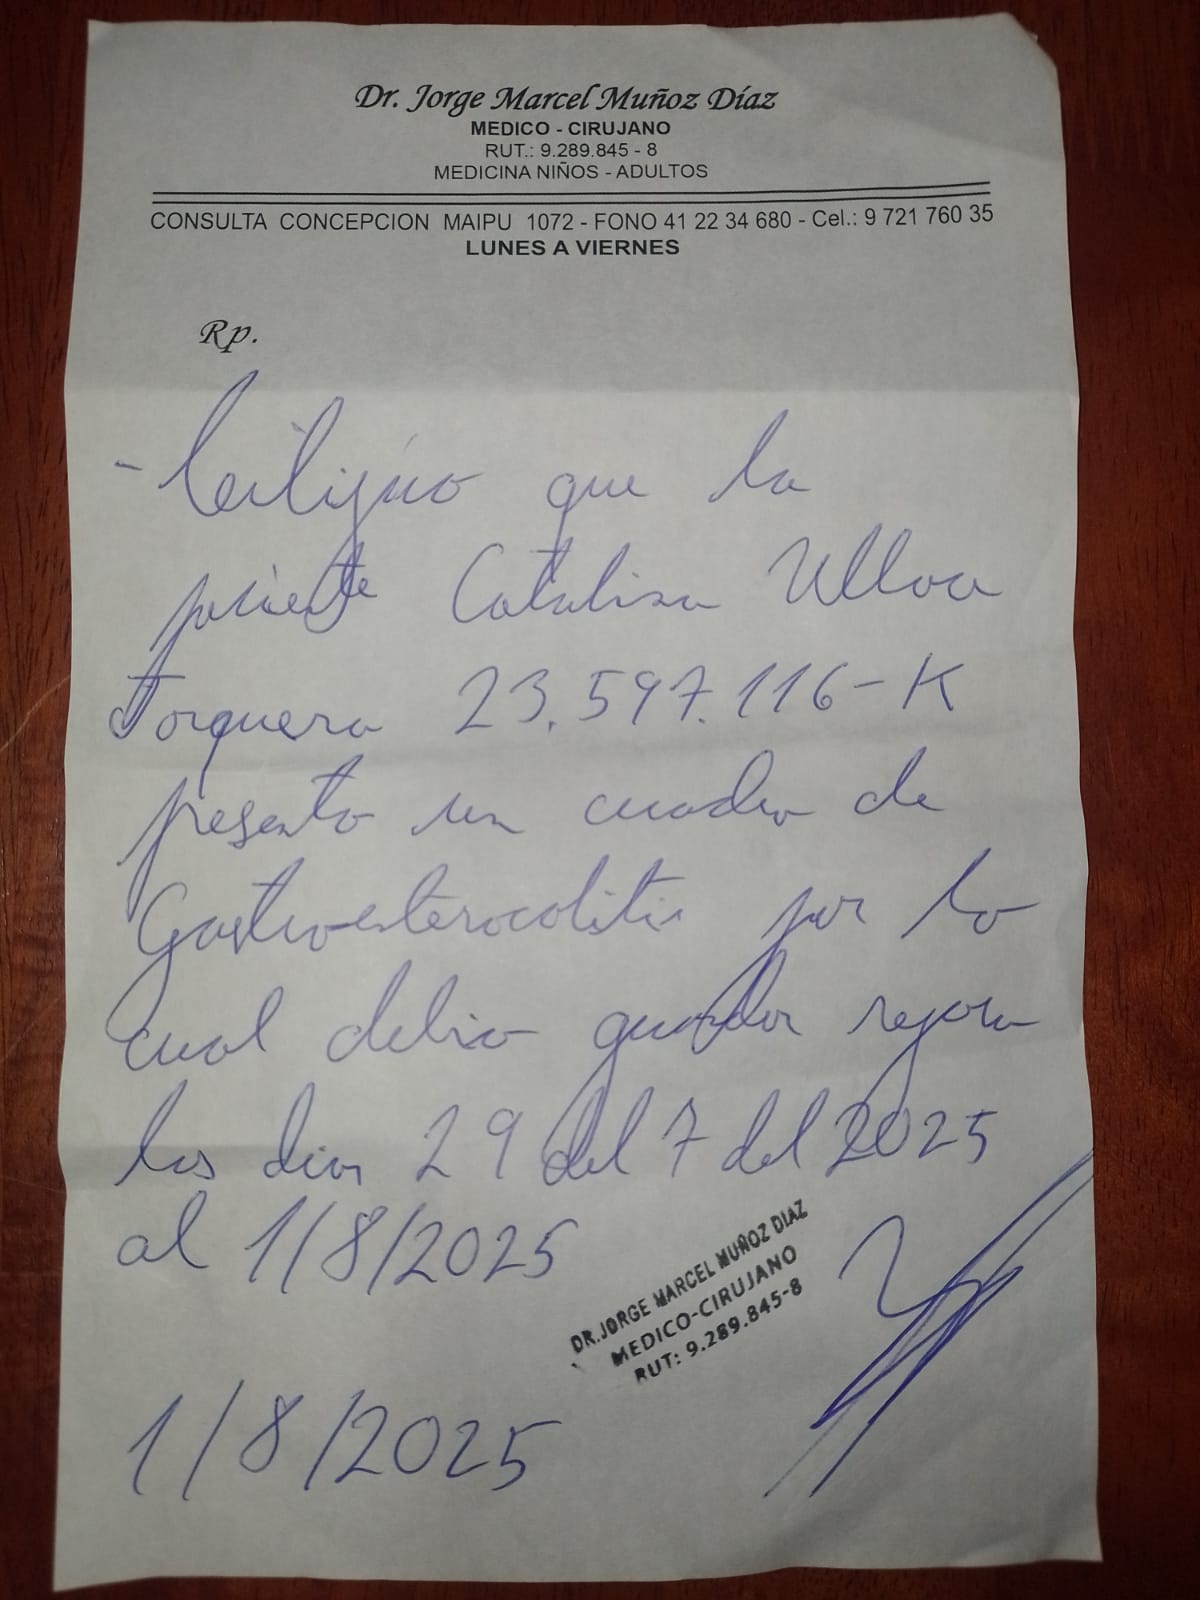 Dr. Jorge Marcel Muñoz Díaz
MEDICO - CIRUJANO
RUT.: 9.289.845 - 8
MEDICINA NIÑOS - ADULTOS
CONSULTA CONCEPCION MAIPU 1072 - FONO 41 22 34 680 - Cel.: 9 721 760 35
LUNES A VIERNES
Rp.
- Certifico que la
paciente Catalina Ulloa
Jorquera 23.597.116-K
presento un cuadro de
Gastroenterocolitis por lo
cual debio guardar reposo
los dias 29 del 7 del 2025
al 1/8/2025
DR. JORGE MARCEL MUÑOZ DIAZ
MEDICO-CIRUJANO
RUT: 9.289.845-8
1/8/2025